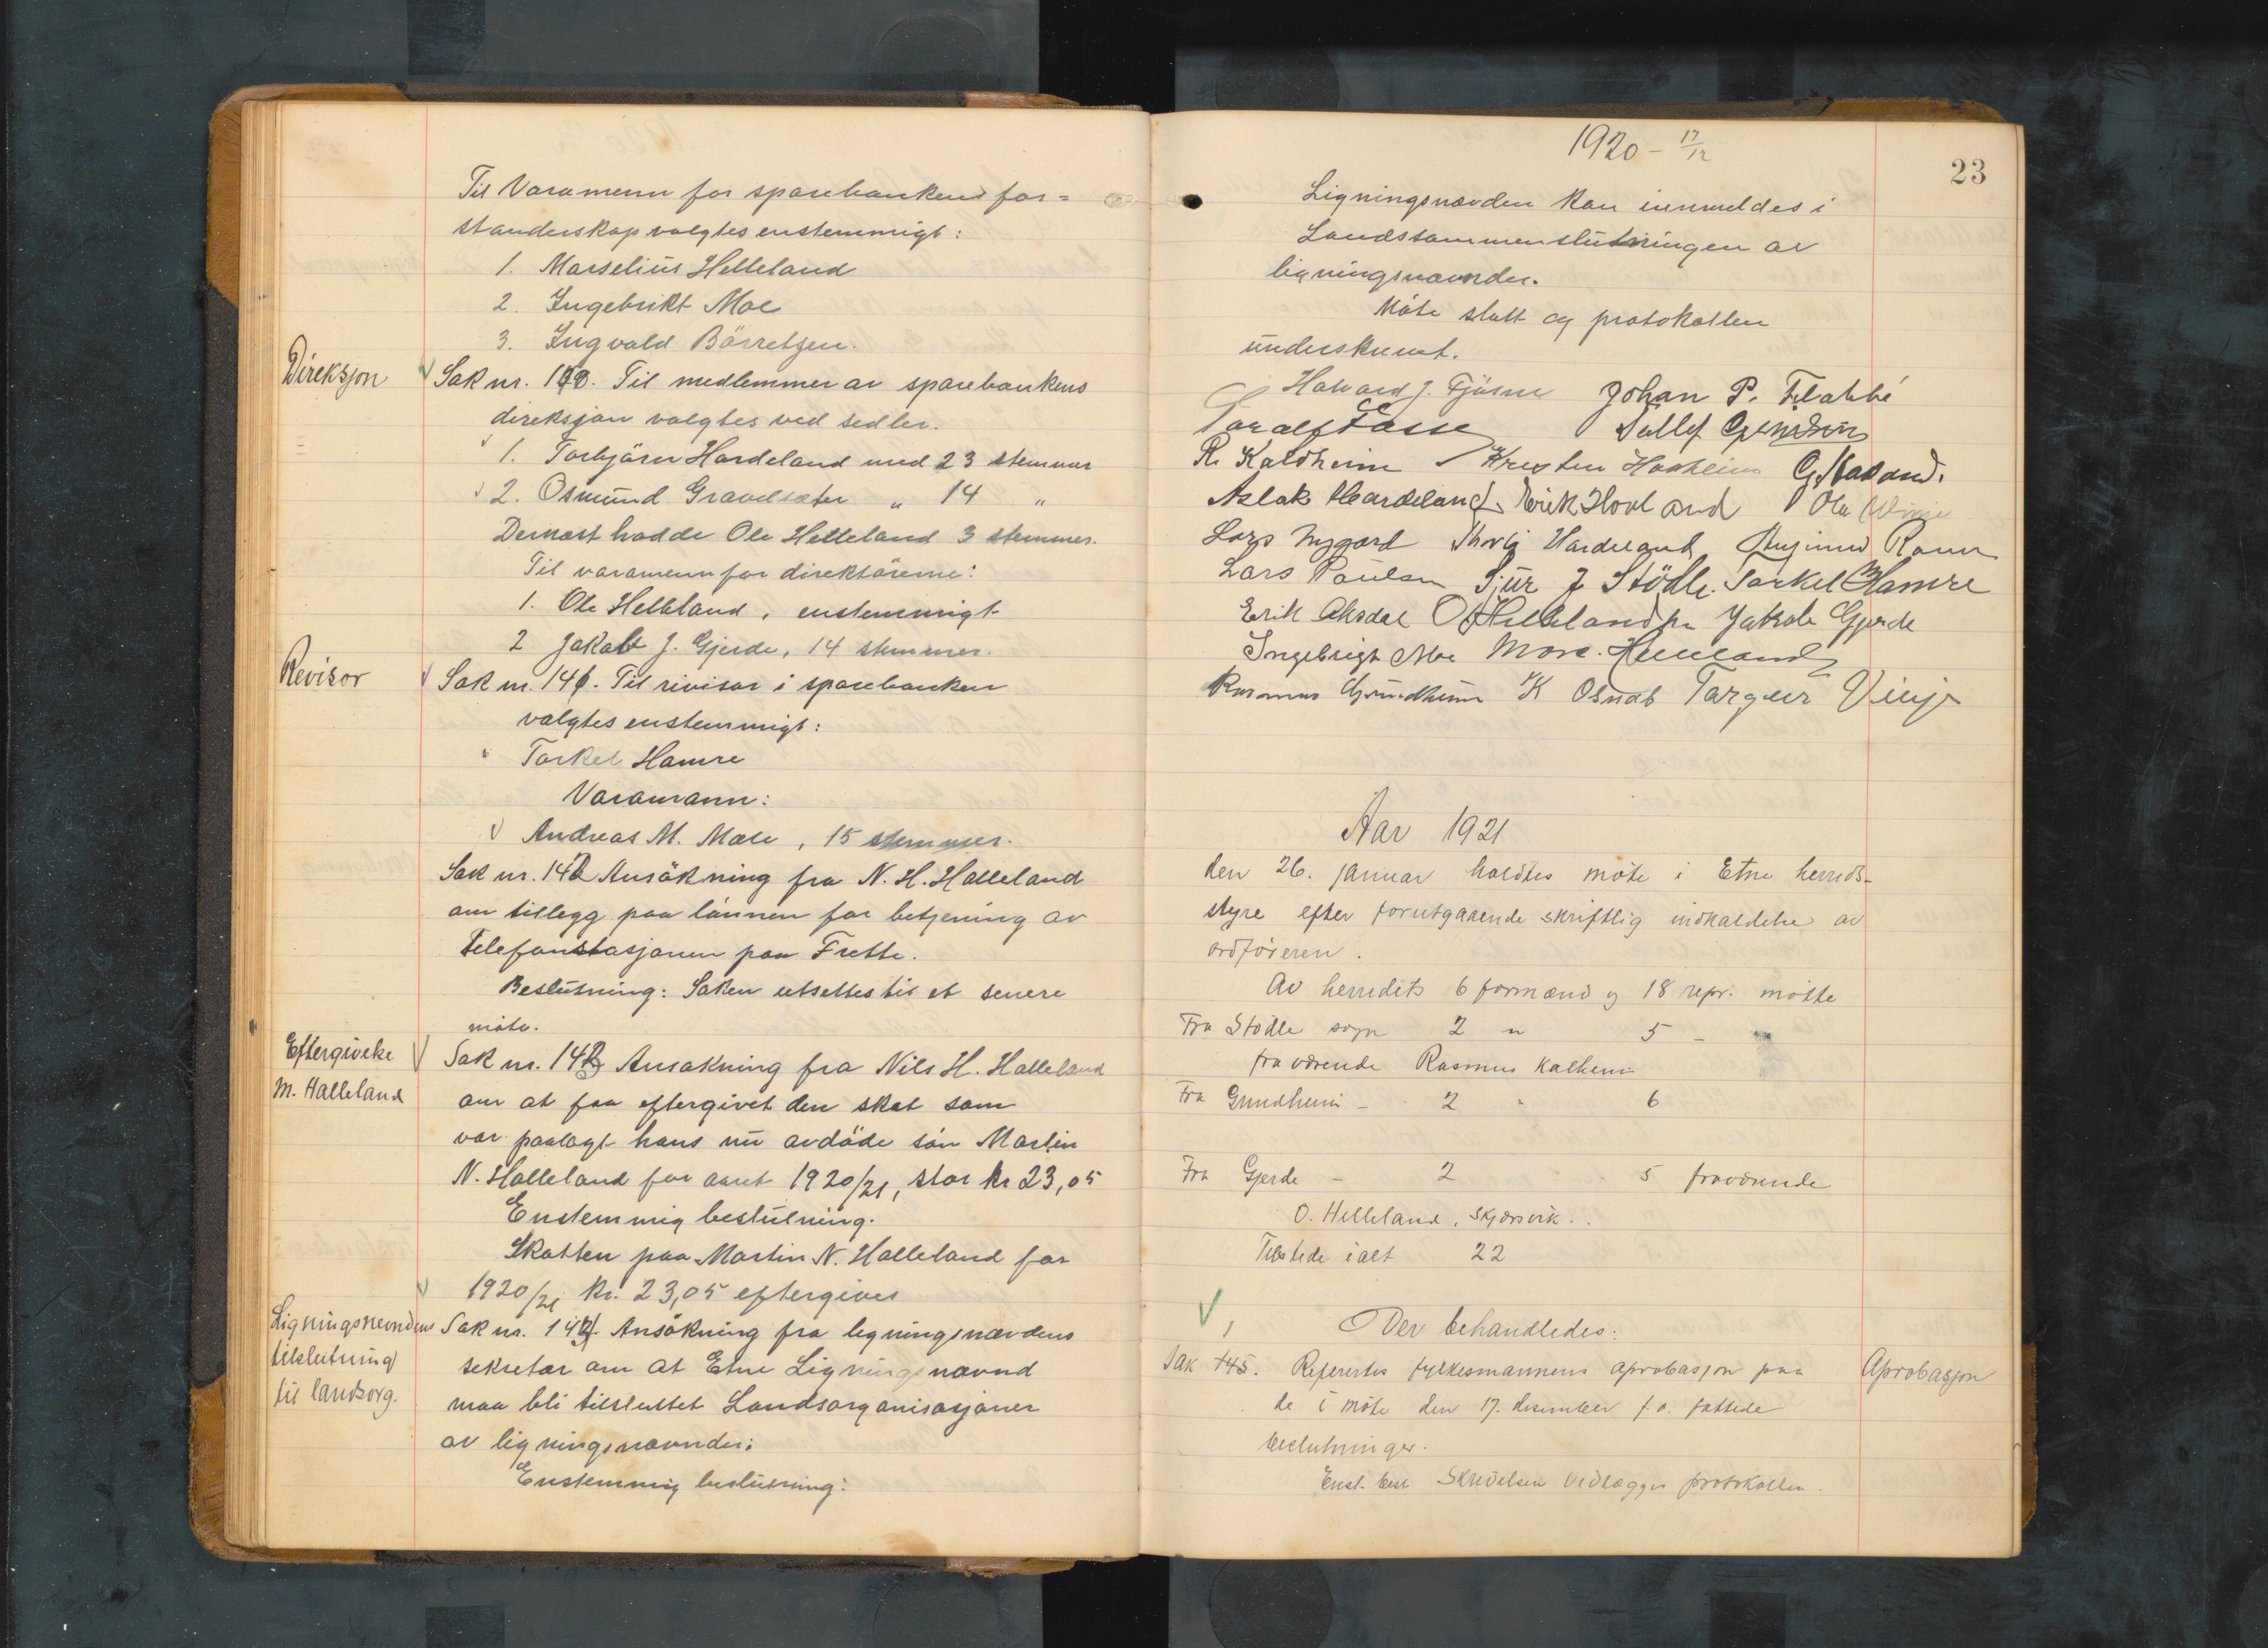 Til Varamenn for sparebankens for=
standerskap valgtes enstemmigt:
1. Marselius Helleland
2. Ingebrikt Moe
3. Ingvald Börretzen.
Direksjon
Sak nr. 140. Til medlemmer av sparebankens
direksjon valgtes ved sedler.
1. Torbjörn Hardeland med 23 stemmer
2. Osmund Gravelsæter " 14 "
Dernæst hadde Ole Helleland 3 stemmer.
Til varamenn for direktörerne:
1. Ole Helleland, enstemmigt
2 Jakob J. Gjerde, 14 stemmer.
Revisor
Sak nr. 141. Til rivisor i sparebanken
valgtes enstemmigt:
Torkel Hamre
Varamann:
Andreas M. Mæle, 15 stemmer.
Sak nr. 142 Ansökning fra N. H. Halleland
om tillegg paa lönnen for betjening av
Telefonstasjonen paa Frette.
Beslutning: Saken utsettes til et senere
möte.
Eftergivelse
M. Halleland
Sak nr. 143 Ansøkning fra Nils H. Halleland
om at faa eftergivet den skat som
var paalagt hans nu avdöde sön Martin
N. Halleland for aaret 1920/21, stor kr 23,05
Enstemmig beslutning.
Skatten paa Martin N. Halleland for
1920/21 kr. 23,05 eftergives
Ligningsnevndens
tilslutning
til landsorg.
Sak nr. 144. Ansökning fra ligningsnævdens
sekretær om at Etne Ligningsnævnd
maa bli tilsluttet Landsorganisasjonen
av ligningsnævnder:
Enstemmig beslutning:
1920 - 17/12
23
Ligningsnævden kan innmeldes i
Landssammenslutningen av
ligningsnævnder.
Möte slutt og protokollen
underskrevet.
Halvard J. Fjösne Johan P. Flabbé
Toralf Fasse Tallef
R. Kaldheim Kresten Hovheim
Aslak Hardeland Erik Hovland Ola Vinje
Lars Nygard Hardeland
Lars Paulsen Sjur J Stödle. Torkel Hamre
Erik Aksdal O Helleland Jakob Gjerde
Ingebrigt Moe Mars. Helleland
Rasmus Grindheim K Osnæs Torgeir Vinje
Aar 1921
den 26. januar holdtes möte i Etne herreds-
styre efter forutgaaende skriftlig indkaldelse av
ordföreren.
Av herredets 6 formænd og 18 repr. mötte
Fra Stödle sogn 2 " 5 -
fraværende Rasmus Kalheim
Fra Grindheim - 2 " 6
Fra Gjerde - 2 5 fraværende
O. Helleland, Skjærsvik.
Tilstede ialt 22
Der behandledes:
Sak 145. Refererdes fylkesmannens aprobasjon paa
Aprobasjon
de i möte den 17. desember f.a. fattede
beslutninger.
Enst. besl. Skrivelsen vedlægges protokollen.